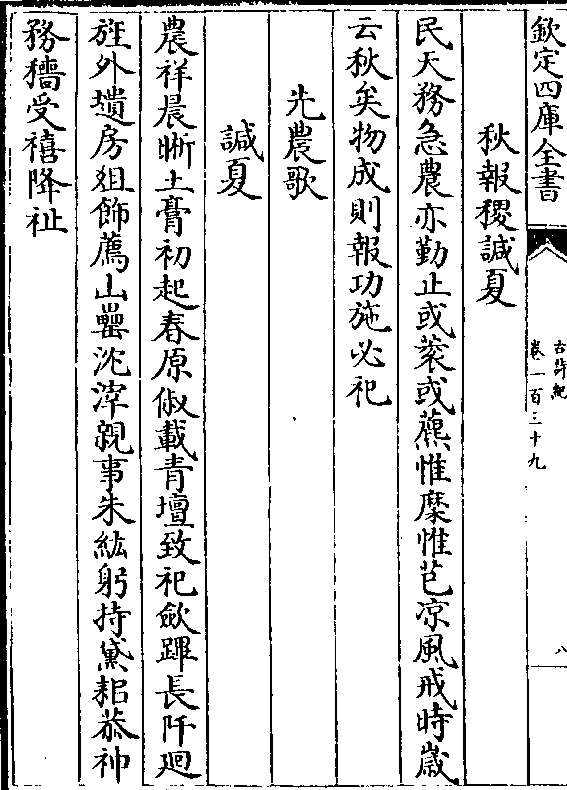 欽定四庫全書
古詩紀
卷一百三十九
八
秋報稷諴夏
民天務急農亦勤止或蓘或藨惟穈惟芑凉風戒時歲
云秋矣物成則報功施必祀
先農歌
諴夏
農祥晨晰土膏初起春原俶載青壇致祀歛蹕長阡廻
旌外壝房俎飾薦山罍沈滓親事朱紘躬持黛耜恭神
務穡受禧降祉